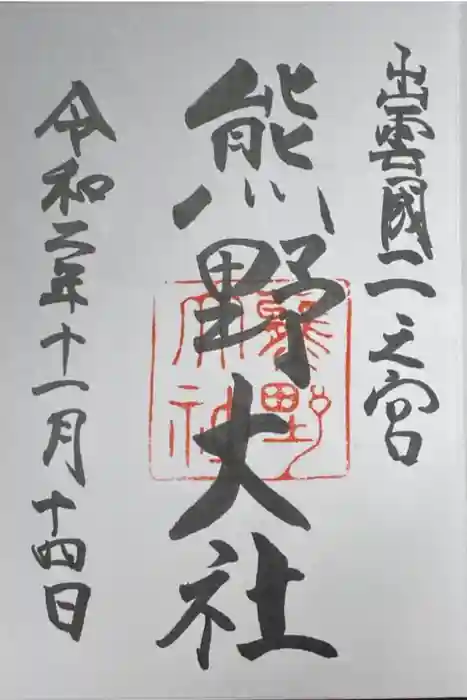 出雲國一之宮
熊野大社
令和二年十一月十四日
熊野